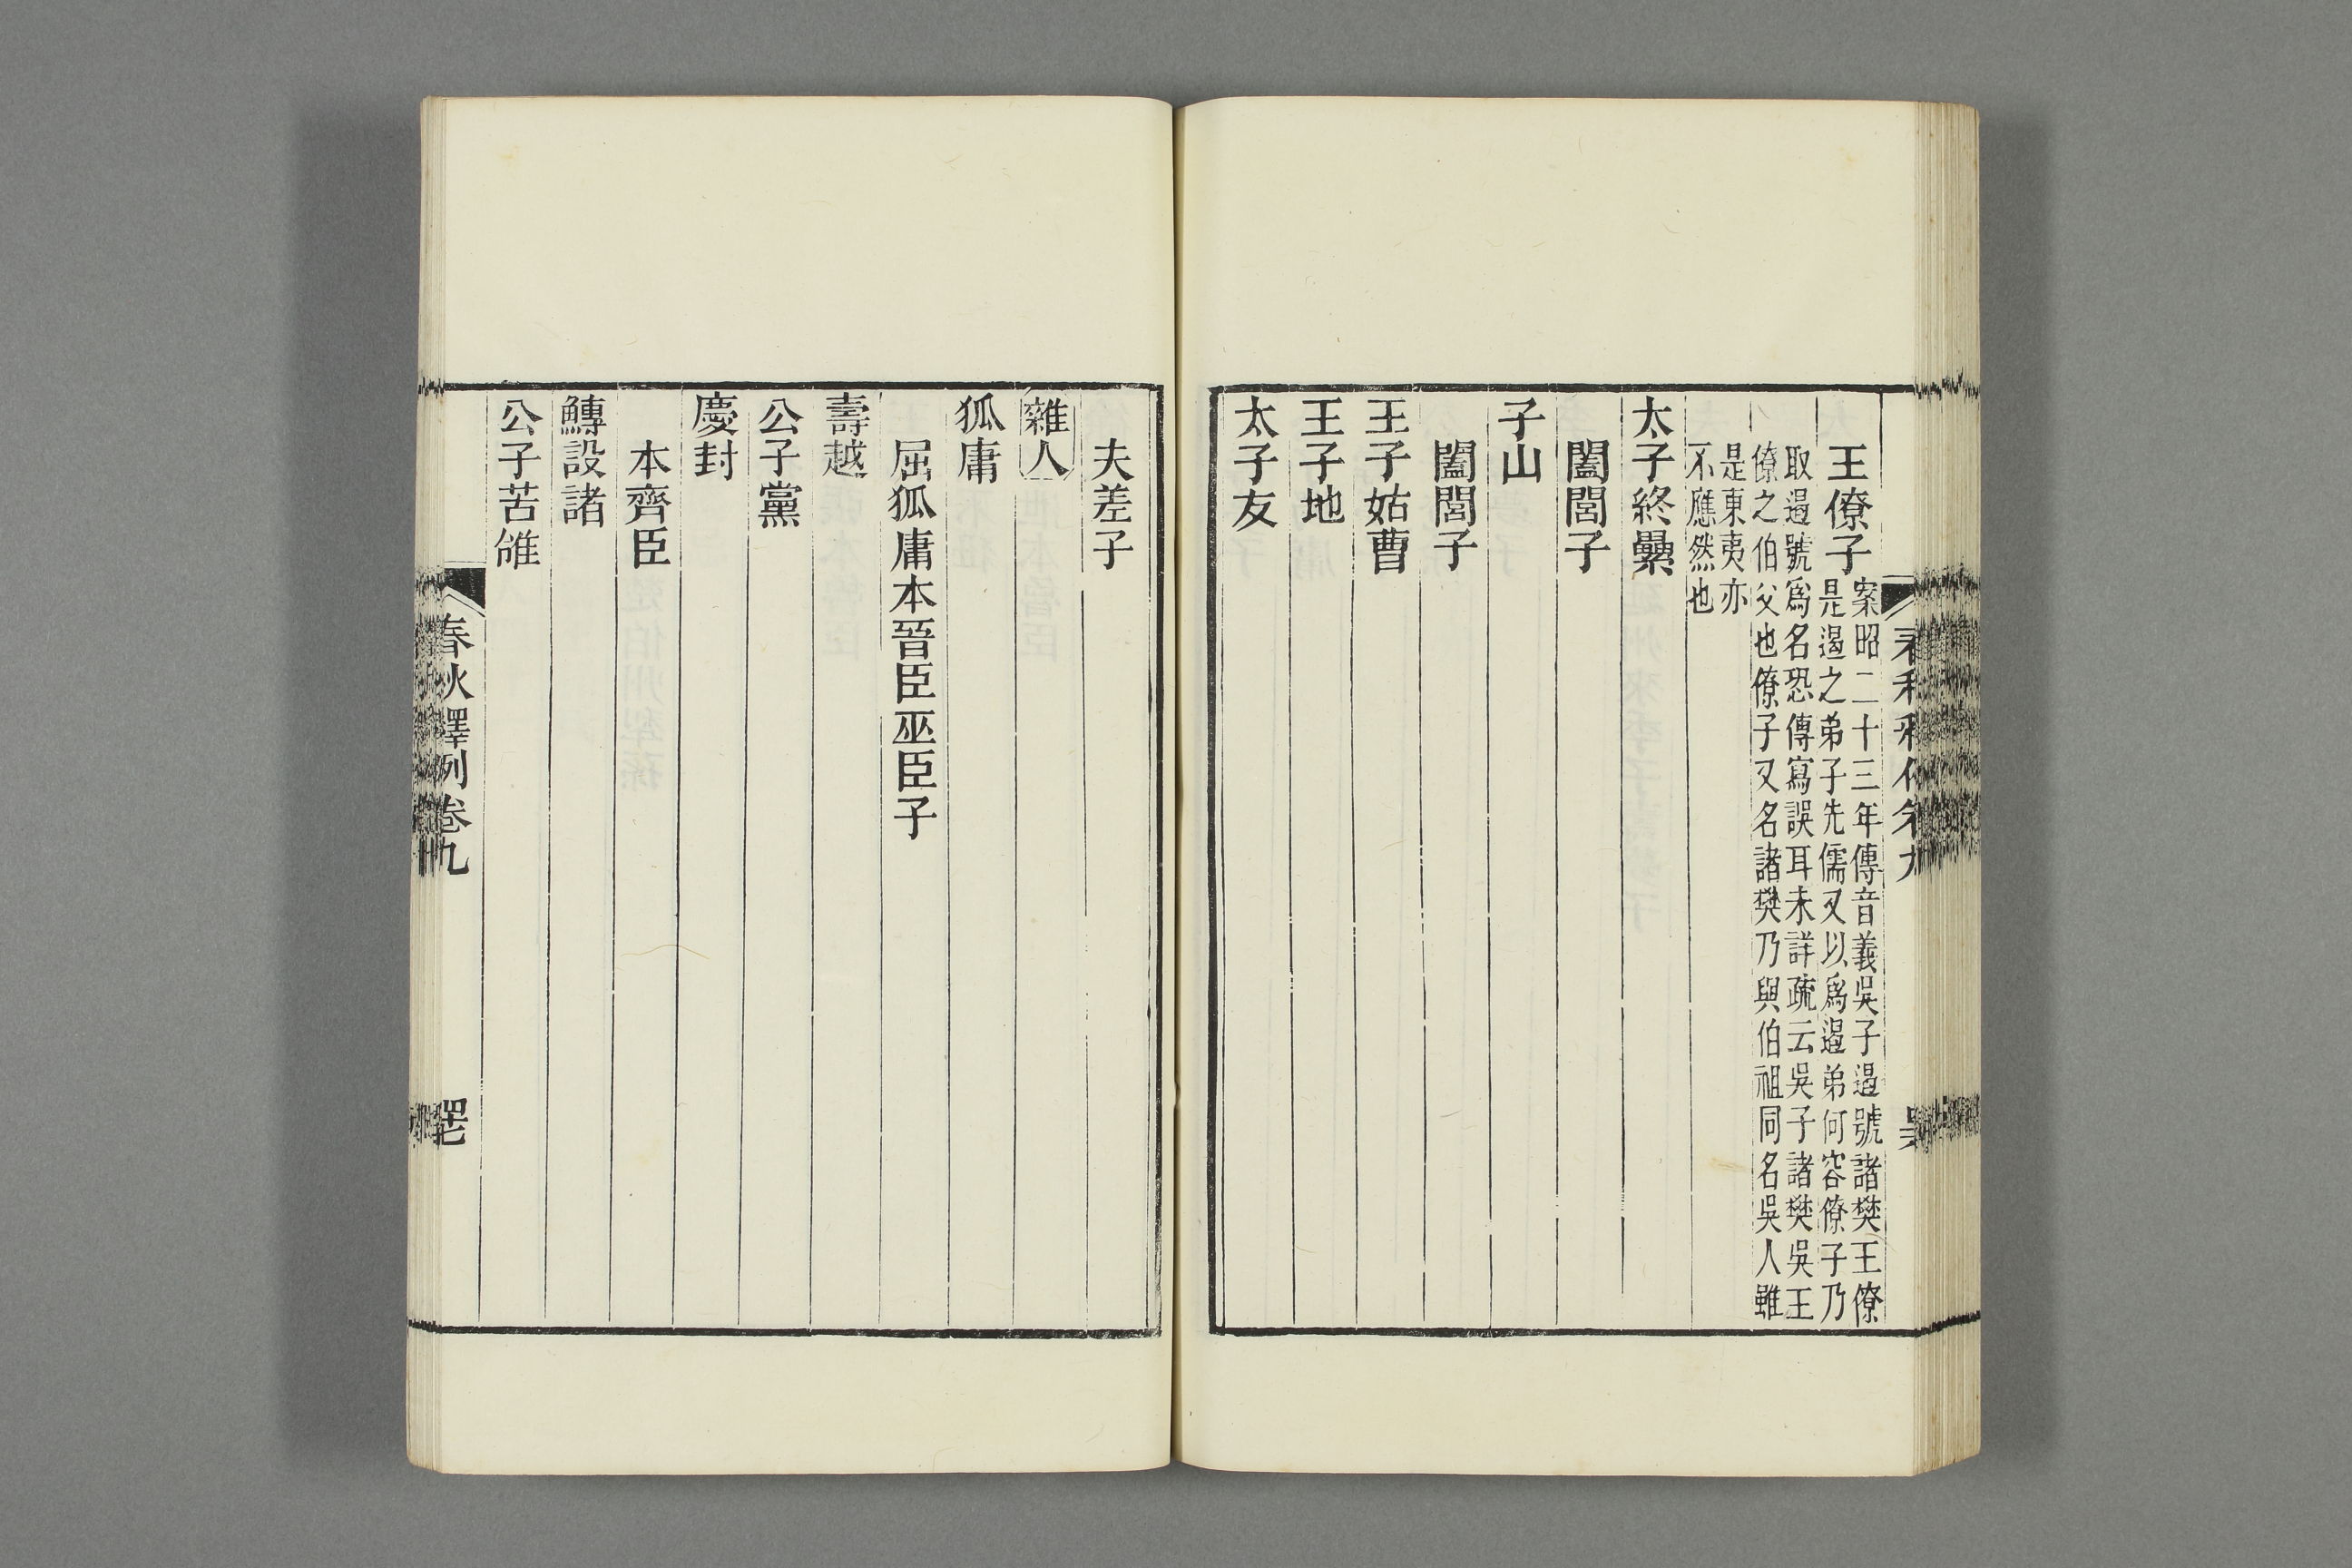 王僚子案昭二十三年傳音義吳子遏號諸樊王僚
是遏之弟子先儒又以爲遏弟何容僚子乃
取遏號爲名恐傳寫誤耳未詳疏云吳子諸樊吳王
僚之伯父也僚子又名諸樊乃與伯祖同名吳人雖
是東夷亦
不應然也
太子終纍
闔閭子
子山
闔閭子
王子姑曹
王子地
太子友
夫差子
雜人
狐庸
屈狐庸本晉臣巫臣子
壽越
公子黨
慶封
本齊臣
鱄設諸
公子苦雂
春秋釋例卷九